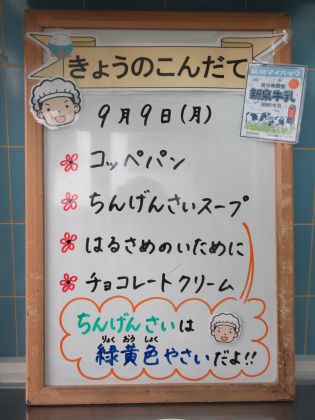 きょうのこんだて
9月9日(月)
コッペパン
ちんげんさいスープ
はるさめのいために
チョコレートクリーム
ちんげんさいは
緑黄色やさいだよ!!
りょく おう しょく
新泉牛乳